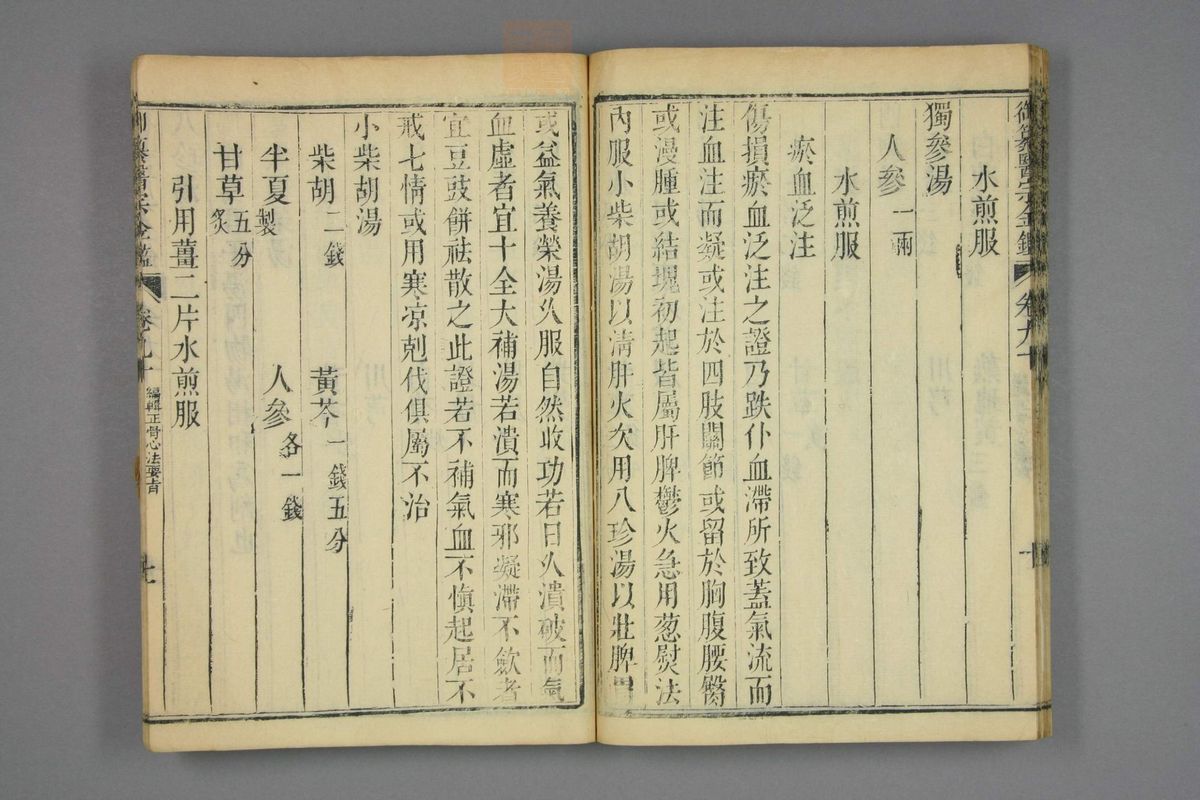 御纂醫宗金鑑 卷九十
水煎服
獨參湯
人參一兩
水煎服
瘀血泛注
傷損瘀血泛注之證乃跌仆血滯所致蓋氣流而
注血注而凝或注於四肢關節或留於胸腹腰臀
或漫腫或結塊初起皆屬肝脾鬱火急用葱熨法
內服小柴胡湯以清肝火次用八珍湯以壯脾胃
或益氣養榮湯久服自然收功若日久潰破而氣
血虛者宜十全大補湯若潰而寒邪凝滯不斂者
宜豆豉餅祛散之此證若不補氣血不慎起居不
戒七情或用寒凉剋伐俱屬不治
小柴胡湯
柴胡二錢 黃芩一錢五分
半夏製 人參各一錢
甘草炙五分
引用薑二片水煎服
御纂醫宗金鑑 卷九十 編輯正骨心法要旨